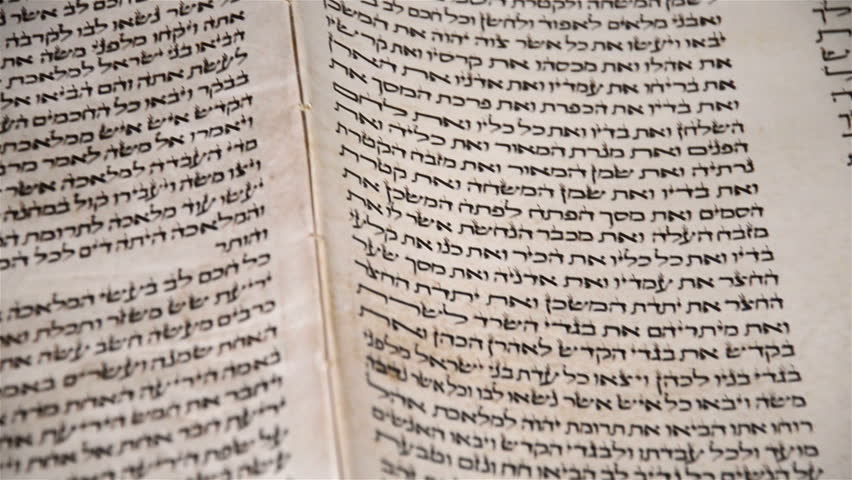 שמן המשחה ולקטרת
ואבני מלאים לאפוד ולחשן וכל חכם לב
יבאו ויעשו את כל אשר צוה יהוה את המשכן
את אהלו ואת מכסהו את קרסיו ואת קרשיו
את בריחו את עמדיו ואת אדניו את הארן
ואת בדיו את הכפרת ואת פרכת המסך את
השלחן ואת בדיו ואת כל כליו ואת לחם
הפנים ואת מנרת המאור ואת כליה ואת
נרתיה ואת שמן המאור ואת מזבח הקטרת
ואת בדיו ואת שמן המשחה ואת קטרת
הסמים ואת מסך הפתח לפתח המשכן את
מזבח העלה ואת מכבר הנחשת אשר לו את
בדיו ואת כל כליו את הכיר ואת כנו את קלעי
החצר את עמדיו ואת אדניה ואת מסך שער
החצר את יתדת המשכן ואת יתדת החצר
ואת מיתריהם את בגדי השרד לשרת
בקדש את בגדי הקדש לאהרן הכהן ואת
בגדי בניו לכהן ויצאו כל עדת בני ישראל מלפני
משה ויבאו כל איש אשר נשאו לבו וכל אשר נדבה
רוחו אתו הביאו את תרומת יהוה למלאכת אהל
מועד ולכל עבדתו ולבגדי הקדש ויבאו האנשים
על הנשים כל נדיב לב הביאו חח ונזם וטבעת
כל אשר נשאו לבו לקרבה
אתה ויקחו מלפני משה את
הביאו בני ישראל למלאכת
לעשת אתה והם הביאו
בבקר ויבאו כל החכמים
הקדש איש איש ממלאכתו
ויאמרו אל משה לאמר
מדי העבדה למלאכה אשר
ויצו משה ויעבירו קול במחנה
יעשו עוד מלאכה לתרומת
והמלאכה היתה דים לכל
והותר
כל חכם לב בעשי המלאכה
יריעת שש משזר ותכלת
כרבים מעשה חשב עשה
האחת שמנה ועשרים
באמה היריעה האחת מדה
ויחבר את חמש היריעת
יריעת חבר אחת אל אחת
על שפת היריעה